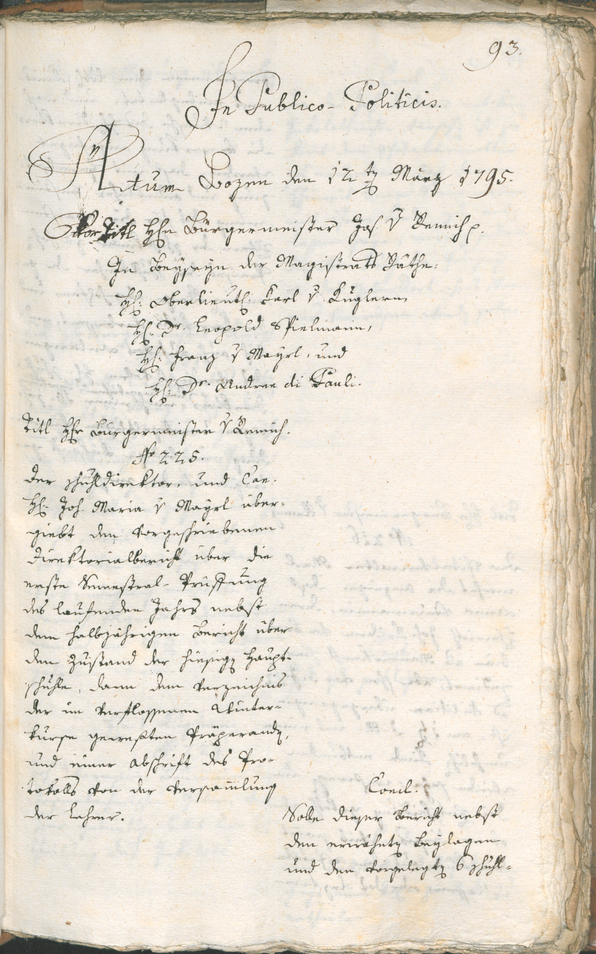 93.
In Publico-Politicis.
Actum Bozen den 12ten März 1795.
Titl Hhr Bürgermeister Jos. v Remich p.
In Beyseyn der Magistrats Räthe.
Hh: Oberlieut: Carl v Kuglern,
Hh: Dr. Leopold Spielmann,
Hh: Franz v Mayrl, und
Hh: Dr. Andree di Pauli.
Titl Hhr Bürgermeister v Remich.
No 225.
Der Schuldirektor, und Can.
Hh: Joh. Maria v Mayrl über-
giebt den vorgeschriebenen
Direktorialbericht über die
erste Semestral-Prüffung
des laufenden Jahrs nebst
dem halbjährigen Bericht über
den Zustand der hiesigen Haupt-
schule, dann dem Verzeichnis
der im verflossenen Winter-
kurse geweßten Präparanden,
und einer Abschrift des Pro-
tokolls von der Versammlung
der Lehrer.
Concl:
Solle dieser Bericht nebst
den erwähnten Beylagen
und den vorgelegten 6 Schul-